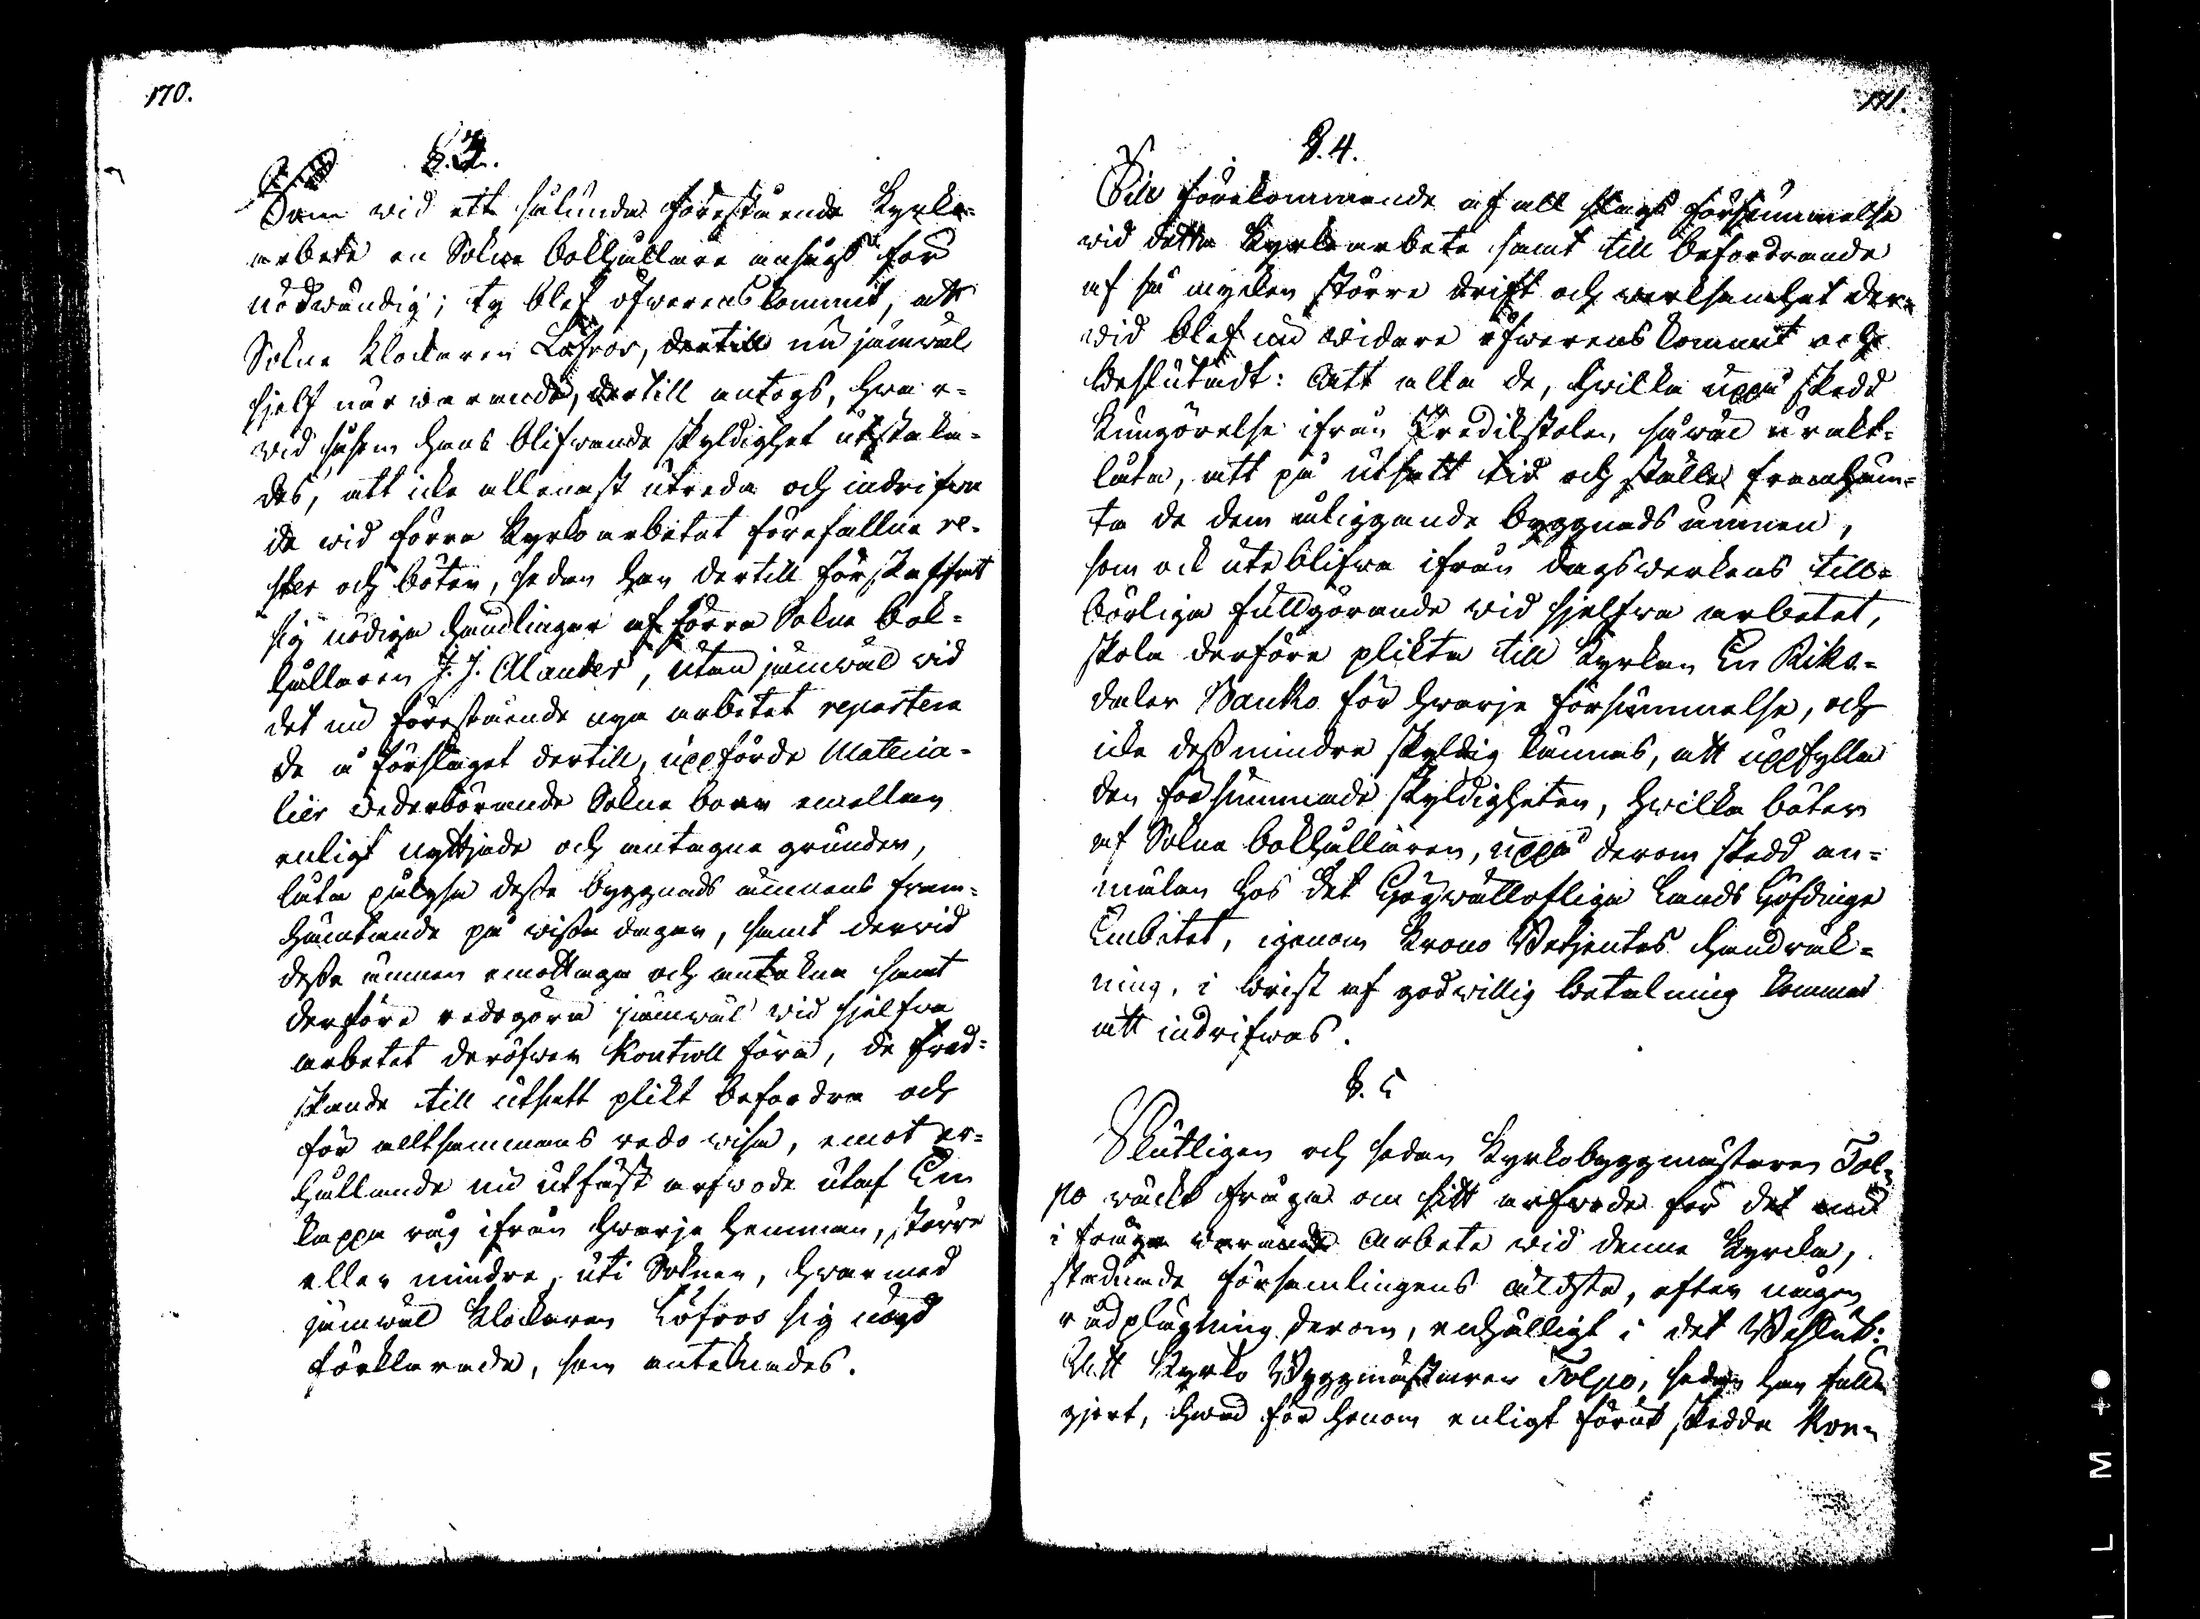 170.
§. 3.
Som wid ett sålunda förestående Kyrko-
arbete en Sokne bokhållare ansågs för
nödwändig; ty blef öfwerenskommit, att
Sokne Klockaren Löfroos, nu jämwäl
sjelf närwarande, dertill antogs, hwar-
wid såsom hans blifwande skyldighet utstaka-
des, att icke allenast utreda och indrifwa
de wid förra Kyrko arbetet förefallna re-
ster och böter, sedan han dertill förskaffat
sig nödiga handlingar af förra Sokne bok-
hållaren J. J. Alander, utan jämwäl wid
det nu förestående nya arbetet repartera
de å förslaget dertill, uppförde Materia-
lier wederbörande Sokne boar emellan
enligt nyttjade och antagna grunder,
låta pålysa desse byggnads ämnens fram-
hämtande på wissa dagar, samt derwid
dessa ämnen emottaga och anteckna samt
derföre redogöra jämwäl wid sjelfwa
arbetet deröfwer Kontroll föra, de fred-
skande till utsatt plikt befordra och
för alltsammans redo wisa, emot er-
hållande nu utfäst arfwode utaf En
kappa råg ifrån hwarje hemman, större
eller mindre, uti Soknen, hwarmed
jämwäl Klockaren Löfroos sig nögd
förklarade, som antecknades.
171.
§. 4.
Till förekommande af all slags försummelse
wid detta Kyrko arbete samt till befordrande
af så mycken större drift och werksamhet der-
wid blef nu widare öfwerenskommit och
beslutadt: Att alla de, hwilka uppå skedd
Kungörelse ifrån Predikstolen, såwäl urakt-
låta, att på utsatt tid och ställe framhäm-
ta de dem åliggande byggnads ämnen,
som ock uteblifwa ifrån dagswerkens till-
börliga fullgörande wid sjelfwa arbetet,
skola derföre plikta till Kyrkan En Riks-
daler Banko för hwarje försummelse, och
icke dess mindre skyldig kännas, att uppfylla
den försummade skyldigheten, hwilka böter
af Sokne bokhållaren, uppå derom skedd an-
mälan hos det Högwällofliga Lands Höfdinge
Embetet, igenom Krono Betjentes handräk-
ning, i brist af godwillig betalning kommer
att indrifwas.
§. 5
Slutligen och sedan Kyrkobyggmästaren Tol-
po wäckt fråga om sitt arfwode för det nu
i fråga warande Arbete wid denna Kyrcka,
stadnade församlingens äldsta, efter någon
rådplägning derom, enhälligt i det Beslut:
Att Kyrko Byggmästaren Tolpo, sedan han full
gjort, hwad för honom enligt förut skedda Kon-